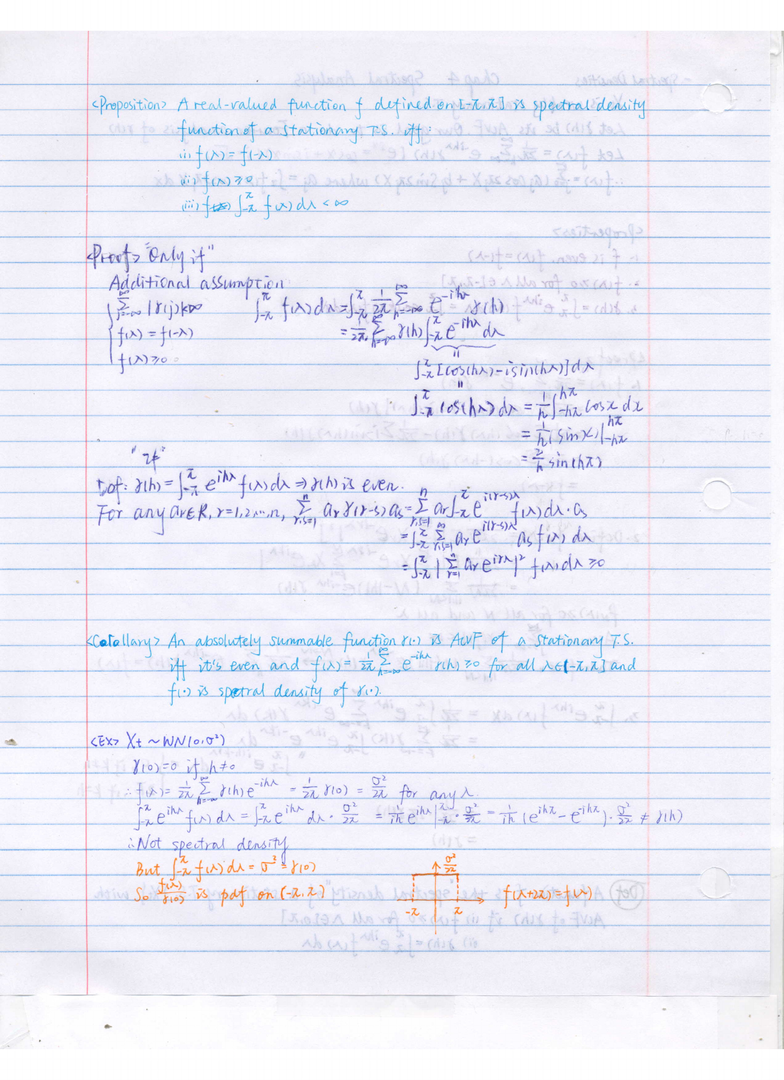 <Proposition> A real-valued function f defined on [-π,π] is spectral density
function of a stationary T.S. iff:
(i) f(λ)=f(-λ)
(ii) f(λ)≥0
(iii) ∫_{-π}^{π} f(λ)dλ<∞
<Proof> "Only if"
Additional assumption
Σ_{j=-∞}^{∞} |γ(j)|<∞ ∫_{-π}^{π} f(λ)dλ=∫_{-π}^{π} 1/2π Σ_{h=-∞}^{∞} e^{-ihλ} γ(h)
f(λ)=f(-λ) =1/2π Σ_{h=-∞}^{∞} γ(h)∫_{-π}^{π} e^{-ihλ} dλ
f(λ)≥0
∫_{-π}^{π} [cos(hλ)-isin(hλ)]dλ
∫_{-π}^{π} cos(hλ)dλ = 1/h ∫_{-hπ}^{hπ} cosx dx
= 1/h (sinx)|_{-hπ}^{hπ}
= 2/h sin(hπ)
"if"
Def: γ(h)=∫_{-π}^{π} e^{ihλ} f(λ)dλ ⇒γ(h) is even.
For any ar∈R, r=1,2,...,n, Σ_{r,s=1}^{n} ar γ(r-s) as=Σ_{r,s=1}^{n} ar∫_{-π}^{π} e^{i(r-s)λ} f(λ)dλ·as
=∫_{-π}^{π} Σ_{r,s=1}^{∞} ar e^{i(r-s)λ} as f(λ) dλ
=∫_{-π}^{π} |Σ_{r=1}^{n} ar e^{irλ}|² f(λ)dλ ≥0
<Corollary> An absolutely summable function γ(·) is ACVF of a stationary T.S.
iff it's even and f(λ)=1/2π Σ_{h=-∞}^{∞} e^{-ihλ} γ(h)≥0 for all λ∈[-π,π] and
f(·) is spetral density of γ(·).
<Ex> Xt ~WN(0,σ²)
γ(0)=0 if h≠0
∴f(λ)=1/2π Σ_{h=-∞}^{∞} γ(h)e^{-ihλ} = 1/2π γ(0) = σ²/2π for any λ.
∫_{-π}^{π} e^{ihλ} f(λ)dλ =∫_{-π}^{π} e^{ihλ} dλ·σ²/2π = 1/ih e^{ihλ}|_{-π}^{π}·σ²/2π = 1/ih (e^{ihπ}-e^{-ihπ})·σ²/2π ≠ γ(h)
∴Not spectral density
But ∫_{-π}^{π} f(λ)dλ=σ²=γ(0) σ²/2π
So f(λ)/γ(0) is pdf on (-π,π) -π π f(λ+2π)=f(λ)